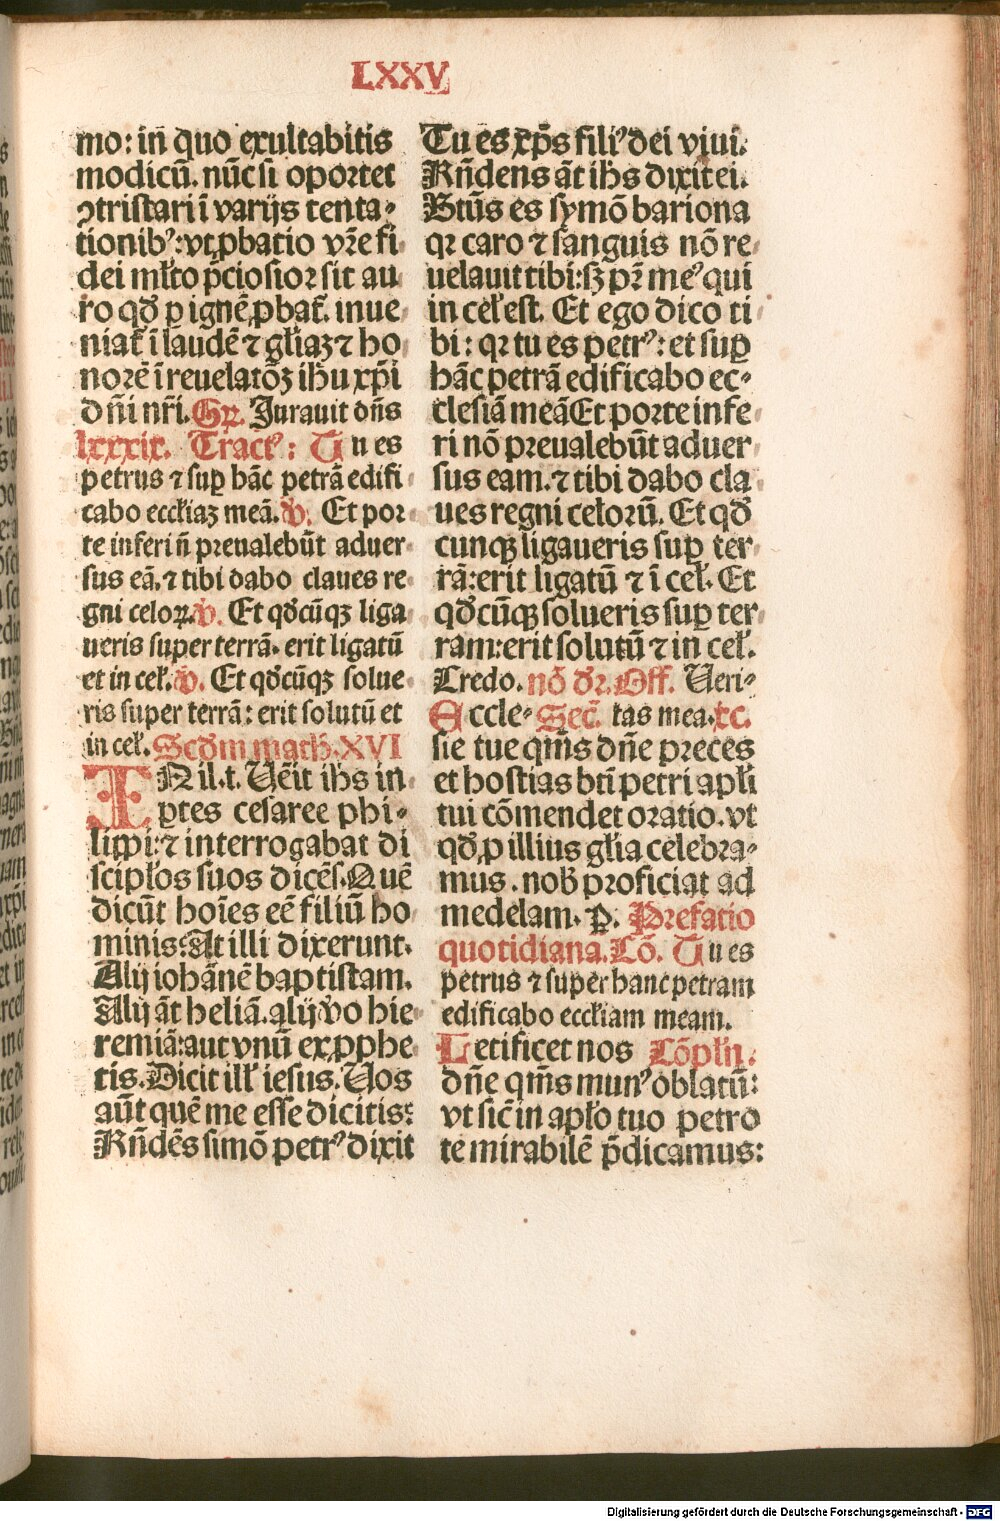 LXXV
mo: in̄ quo exultabitis
modicū. nūc si oportet
ꝯtristari ī varijs tenta⸗
tionibꝰ: vt ꝓbatio vr̄e fi
dei ml̄to p̄ciosior sit au
ro qd̄ ꝑ ignē ꝓbat̄. inue
niat̄ ī laudē ⁊ gl̄iaꝫ ⁊ ho
norē ī reuelatōꝫ ih̄u xp̄i
dn̄i nr̄i. Gꝝ. Jurauit dn̄s
lxxxix. Tractꝰ: Tu es
petrus ⁊ suꝑ hāc petrā edifi
cabo eccl̄iaꝫ meā. v̄. Et por
te inferi n̄ preualebūt aduer
sus eā. ⁊ tibi dabo claues re
gni celoꝝ. v̄. Et qd̄cūqꝫ liga
ueris super terrā. erit ligatū
et in cel̄. v̄. Et qd̄cūqꝫ solue
ris super terrā: erit solutū et
in cel̄. Scd̄m math̄. XVI
IN il. t. Vēit ih̄s in
ꝑtes cesaree phi⸗
lippi: ⁊ interrogabat di
scipl̄os suos dicēs. Quē
dicūt hoīes eē filiū ho
minis: At illi dixerunt.
Alij iohānē baptistam.
Alij āt heliā. alij v̄o hie
remiā: aut vnū ex ꝓphe
tis. Dicit ill̄ iesus. Vos
aūt quē me esse dicitis:
Rn̄dēs simō petrꝰ dixit
Tu es xp̄s filiꝰ dei viui.
Rn̄dens āt ih̄s dixit ei.
Btūs es symō bariona
qꝛ caro ⁊ sanguis nō re
uelauit tibi: sꝫ pr̄ meꝰ qui
in cel̄ est. Et ego dico ti
bi: qꝛ tu es petrꝰ: et suꝑ
hāc petrā edificabo ec⸗
clesiā meā Et porte infe
ri nō preualebūt aduer
sus eam. ⁊ tibi dabo cla
ues regni celorū. Et qd̄
cunqꝫ ligaueris suꝑ ter
rā: erit ligatū ⁊ ī cel̄. Et
qd̄cūqꝫ solueris suꝑ ter
ram: erit solutū ⁊ in cel̄.
Credo. nō dr̄. Off. Veri⸗
Eccle⸗ Sec̄. tas mea. ꝛc.
sie tue qm̄s dn̄e preces
et hostias bt̄i petri apl̄i
tui cōmendet oratio. vt
qd̄ ꝓ illius gl̄ia celebra⸗
mus. nob̄ proficiat ad
medelam. ꝑ. Prefatio
quotidiana. Cō. Tu es
petrus ⁊ super hanc petram
edificabo eccl̄iam meam.
Letificet nos Cōpl̄n̄.
dn̄e qm̄s munꝰ oblatū:
vt sic̄ in apl̄o tuo petro
te mirabilē p̄dicamus:
Digitalisierung gefördert durch die Deutsche Forschungsgemeinschaft - DFG